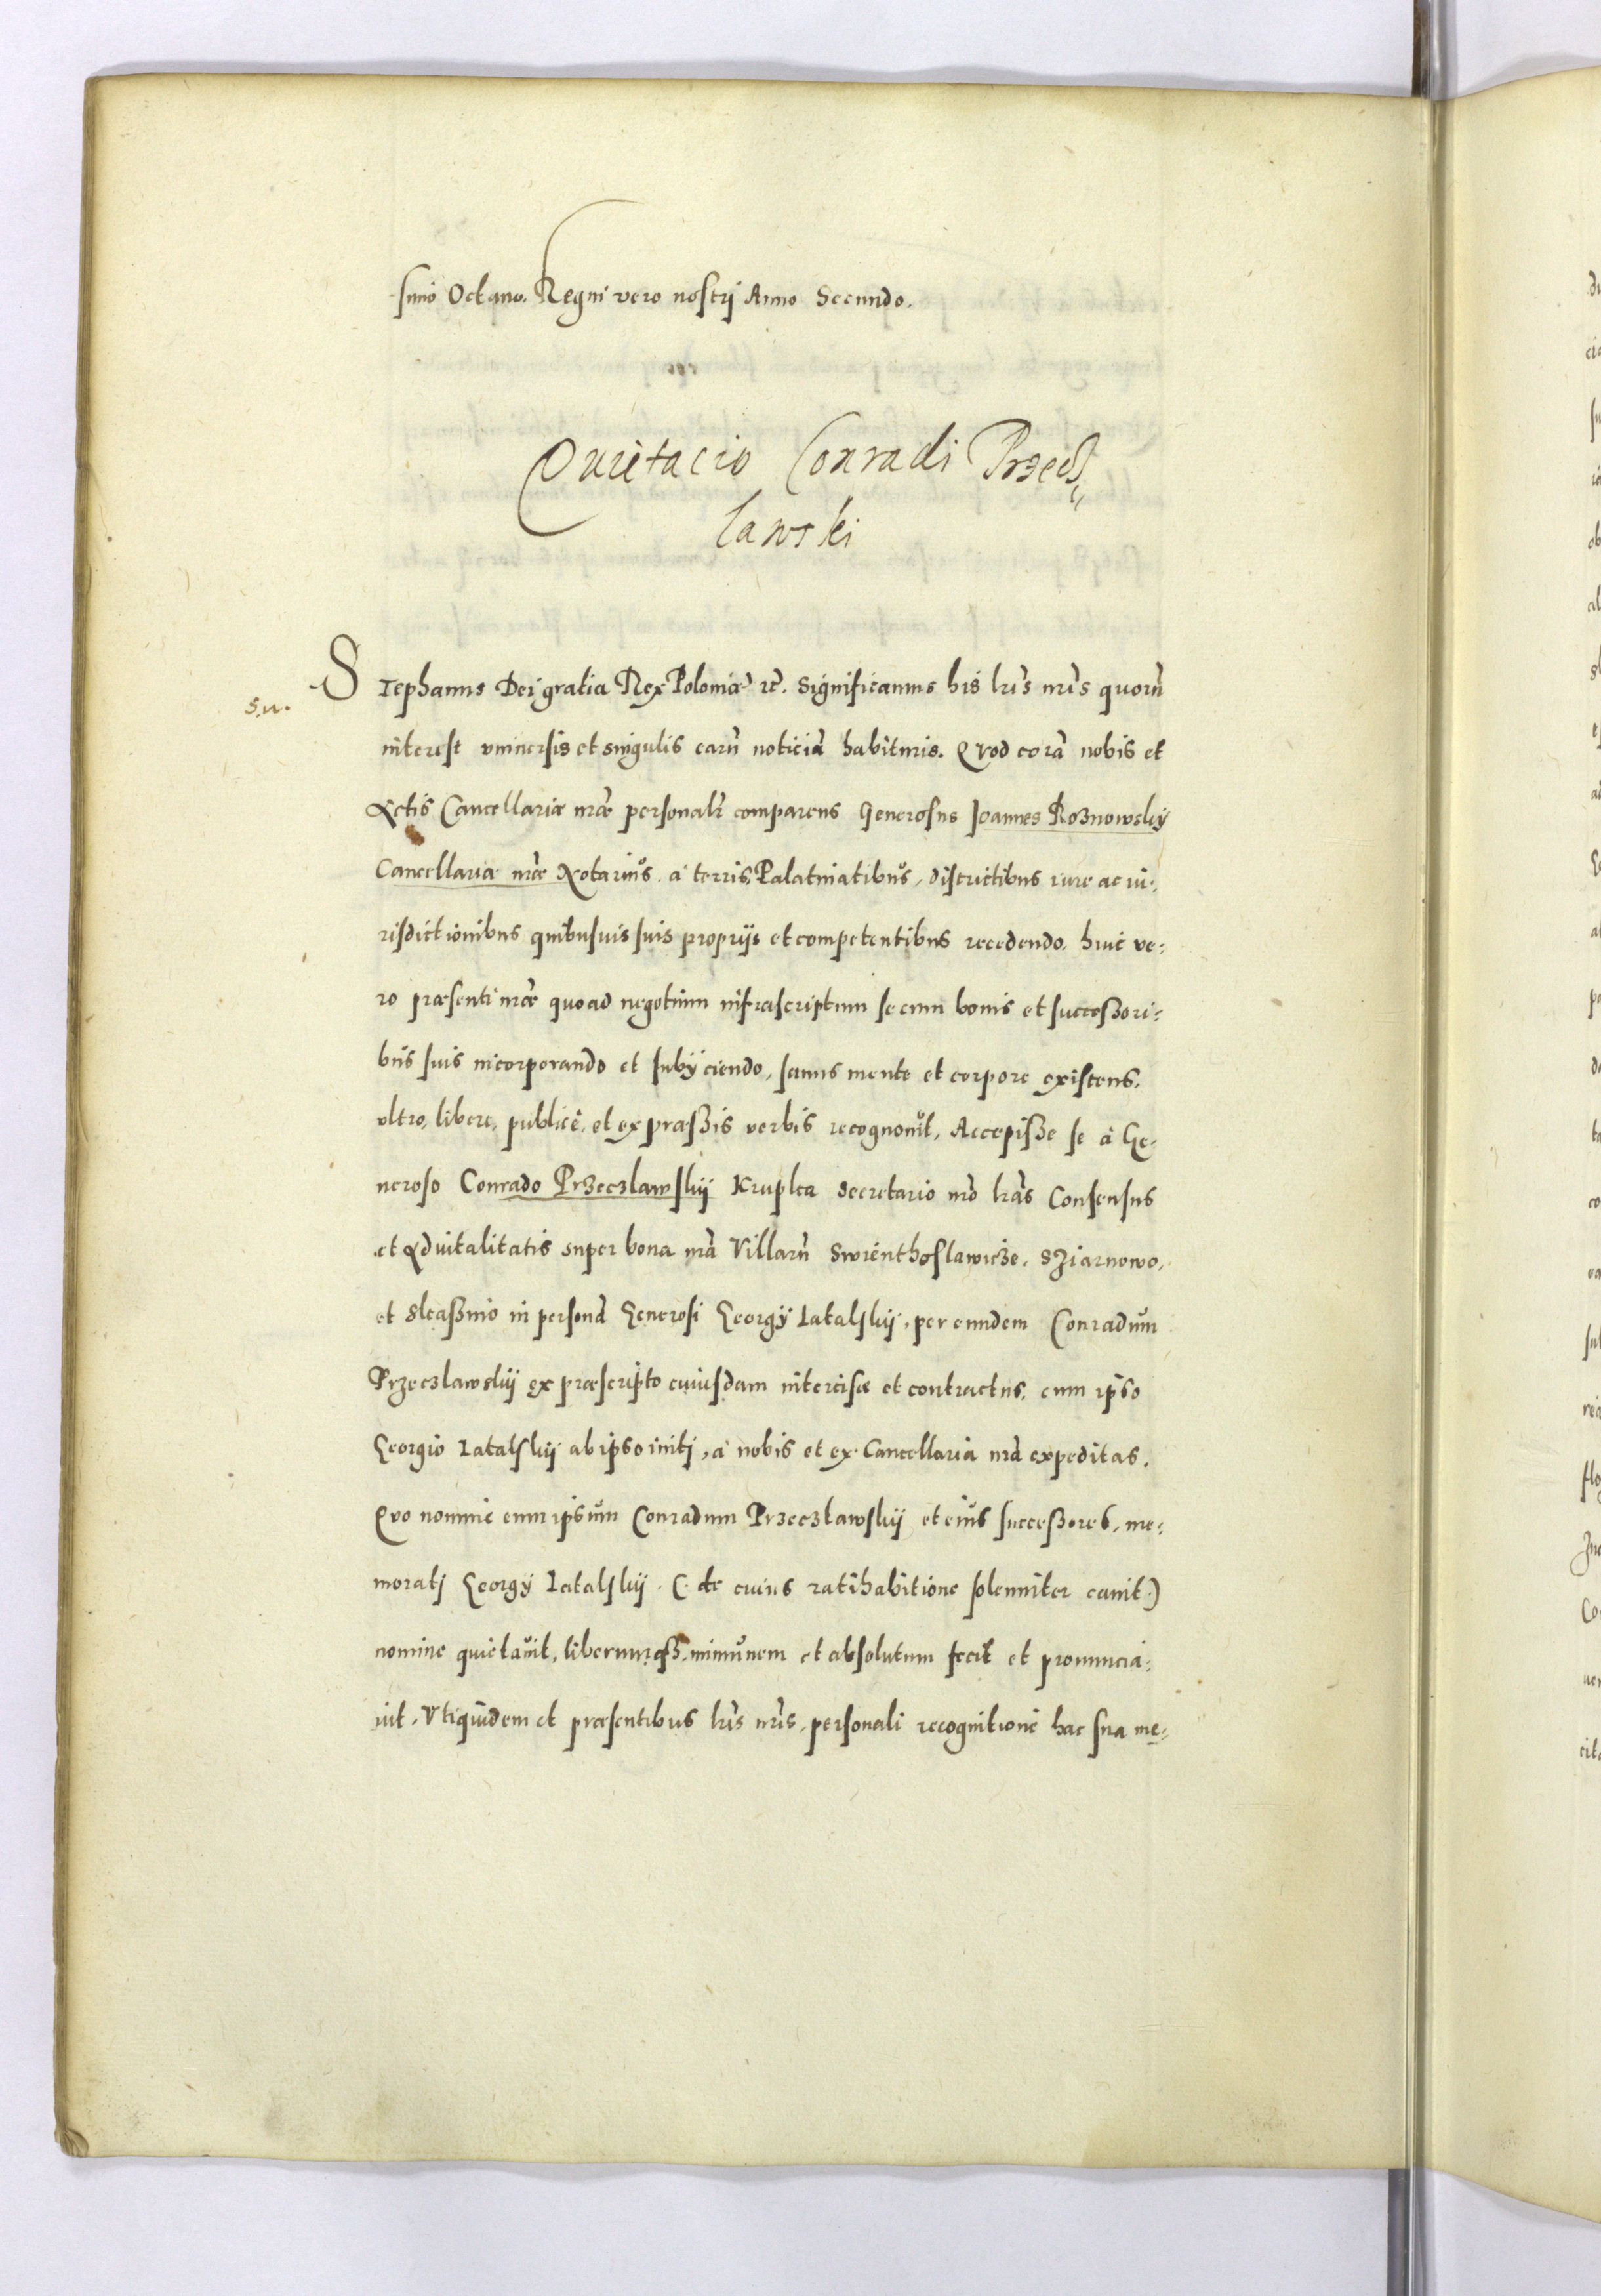 simo Octauo. Regni vero nostrj Anno Secundo.
Quietacio Conradi Przecz„
lawski
Stephanus Dei gratia Rex Poloniæ etc. Significamus his lrīs nrīs quorū
s.n.
interest vniuersis et singulis earū noticiā habituris. Quod corā nobis et
Actis Cancellariæ nræ personalr comparens Generosus Joannes Roznowsky
Cancellariæ nræ Notarius. à terris, Palatinatibus, districtibus iure ac iu-
risdictionibus quibusuis suis proprijs et competentibus recedendo. huic ve-
ro præsenti nræ quoad negotium infrascriptum se cum bonis et successori-
bus suis incorporando et subijciendo, sanus mente et corpore existens.
vltro, libere, publicè, et expræssis verbis recognouit, Accepisse se à Ge-
neroso Conrado Przeczlawskij Krupka Secretario nrō lrās Consensus
et Aduitalitatis super bona nrā Villarū Swienthoslawicze. Sziarnowo,
et Sleassino in personā Generosi Georgij Latalskij, per eundem Conradum
Przeczlawskij ex præscripto cuiusdam intercisæ et contractus, cum ipso
Georgio Latalskij ab ipso initj, à nobis et ex Cancellaria nrā expeditas.
Quo nomine eum ipsum Conradum Przeczlawskij et eius successores, me-
moratj Georgij Latalskij. (de cuius ratihabitione solenniter cauit)
nomine quietauit, liberum immunem et absolutum fecit et pronuncia-
uit. Vtiquidem et præsentibus lrīs nrīs, personali recognitione hac sua me-